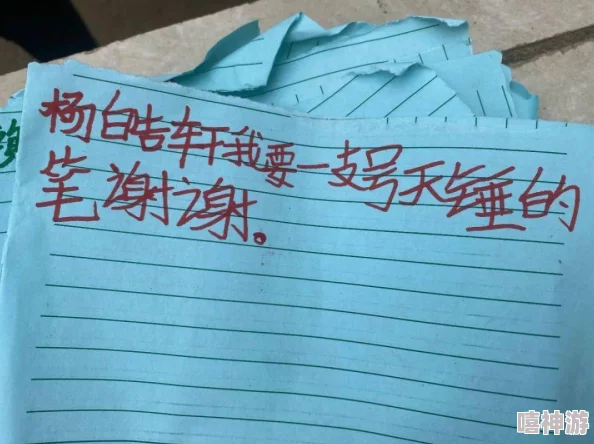 杨皓轩我要一支号天锤的
笔谢谢。
嘻神游